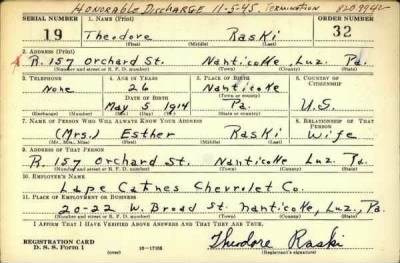 HONORABLE DISCHARGE 11-5-45. TERMINATION
SERIAL NUMBER 1. NAME (Print) ORDER NUMBER
19 Theodore Raski 32
(First) (Middle) (Last)
2. ADDRESS (Print)
R. 157 Orchard St. Nanticoke, Luz. Pa.
(Number and street or R. F. D. number) (Town) (County) (State)
3. TELEPHONE 4. AGE IN YEARS 5. PLACE OF BIRTH 6. COUNTRY OF CITIZENSHIP
None 26 Nanticoke
DATE OF BIRTH (Town or county)
May 5 1914 Pa. U.S.
(Mo.) (Day) (Yr.) (State or country)
7. NAME OF PERSON WHO WILL ALWAYS KNOW YOUR ADDRESS 8. RELATIONSHIP OF THAT PERSON
(Mrs.) Esther Raski Wife
(Mr., Mrs., Miss) (First) (Middle) (Last)
9. ADDRESS OF THAT PERSON
R. 157 Orchard St. Nanticoke Luz. Pa.
(Number and street or R. F. D. number) (Town) (County) (State)
10. EMPLOYER'S NAME
Lape Catnes Chevrolet Co.
11. PLACE OF EMPLOYMENT OR BUSINESS
20-22 W. Broad St. Nanticoke, Luz., Pa.
(Number and street or R. F. D. number) (Town) (County) (State)
I AFFIRM THAT I HAVE VERIFIED ABOVE ANSWERS AND THAT THEY ARE TRUE.
REGISTRATION CARD
D. S. S. Form 1 (over) Theodore Raski
(Registrant's signature)